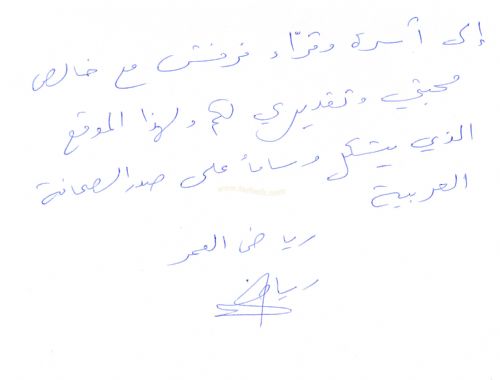 إلى أسرة وقرّاء فرفش مع خالص
محبتي وتقديري لكم ولهذا الموقع
الذي يشكل وساماً على صدر الصحافة
العربية
رياض العمر
رياض